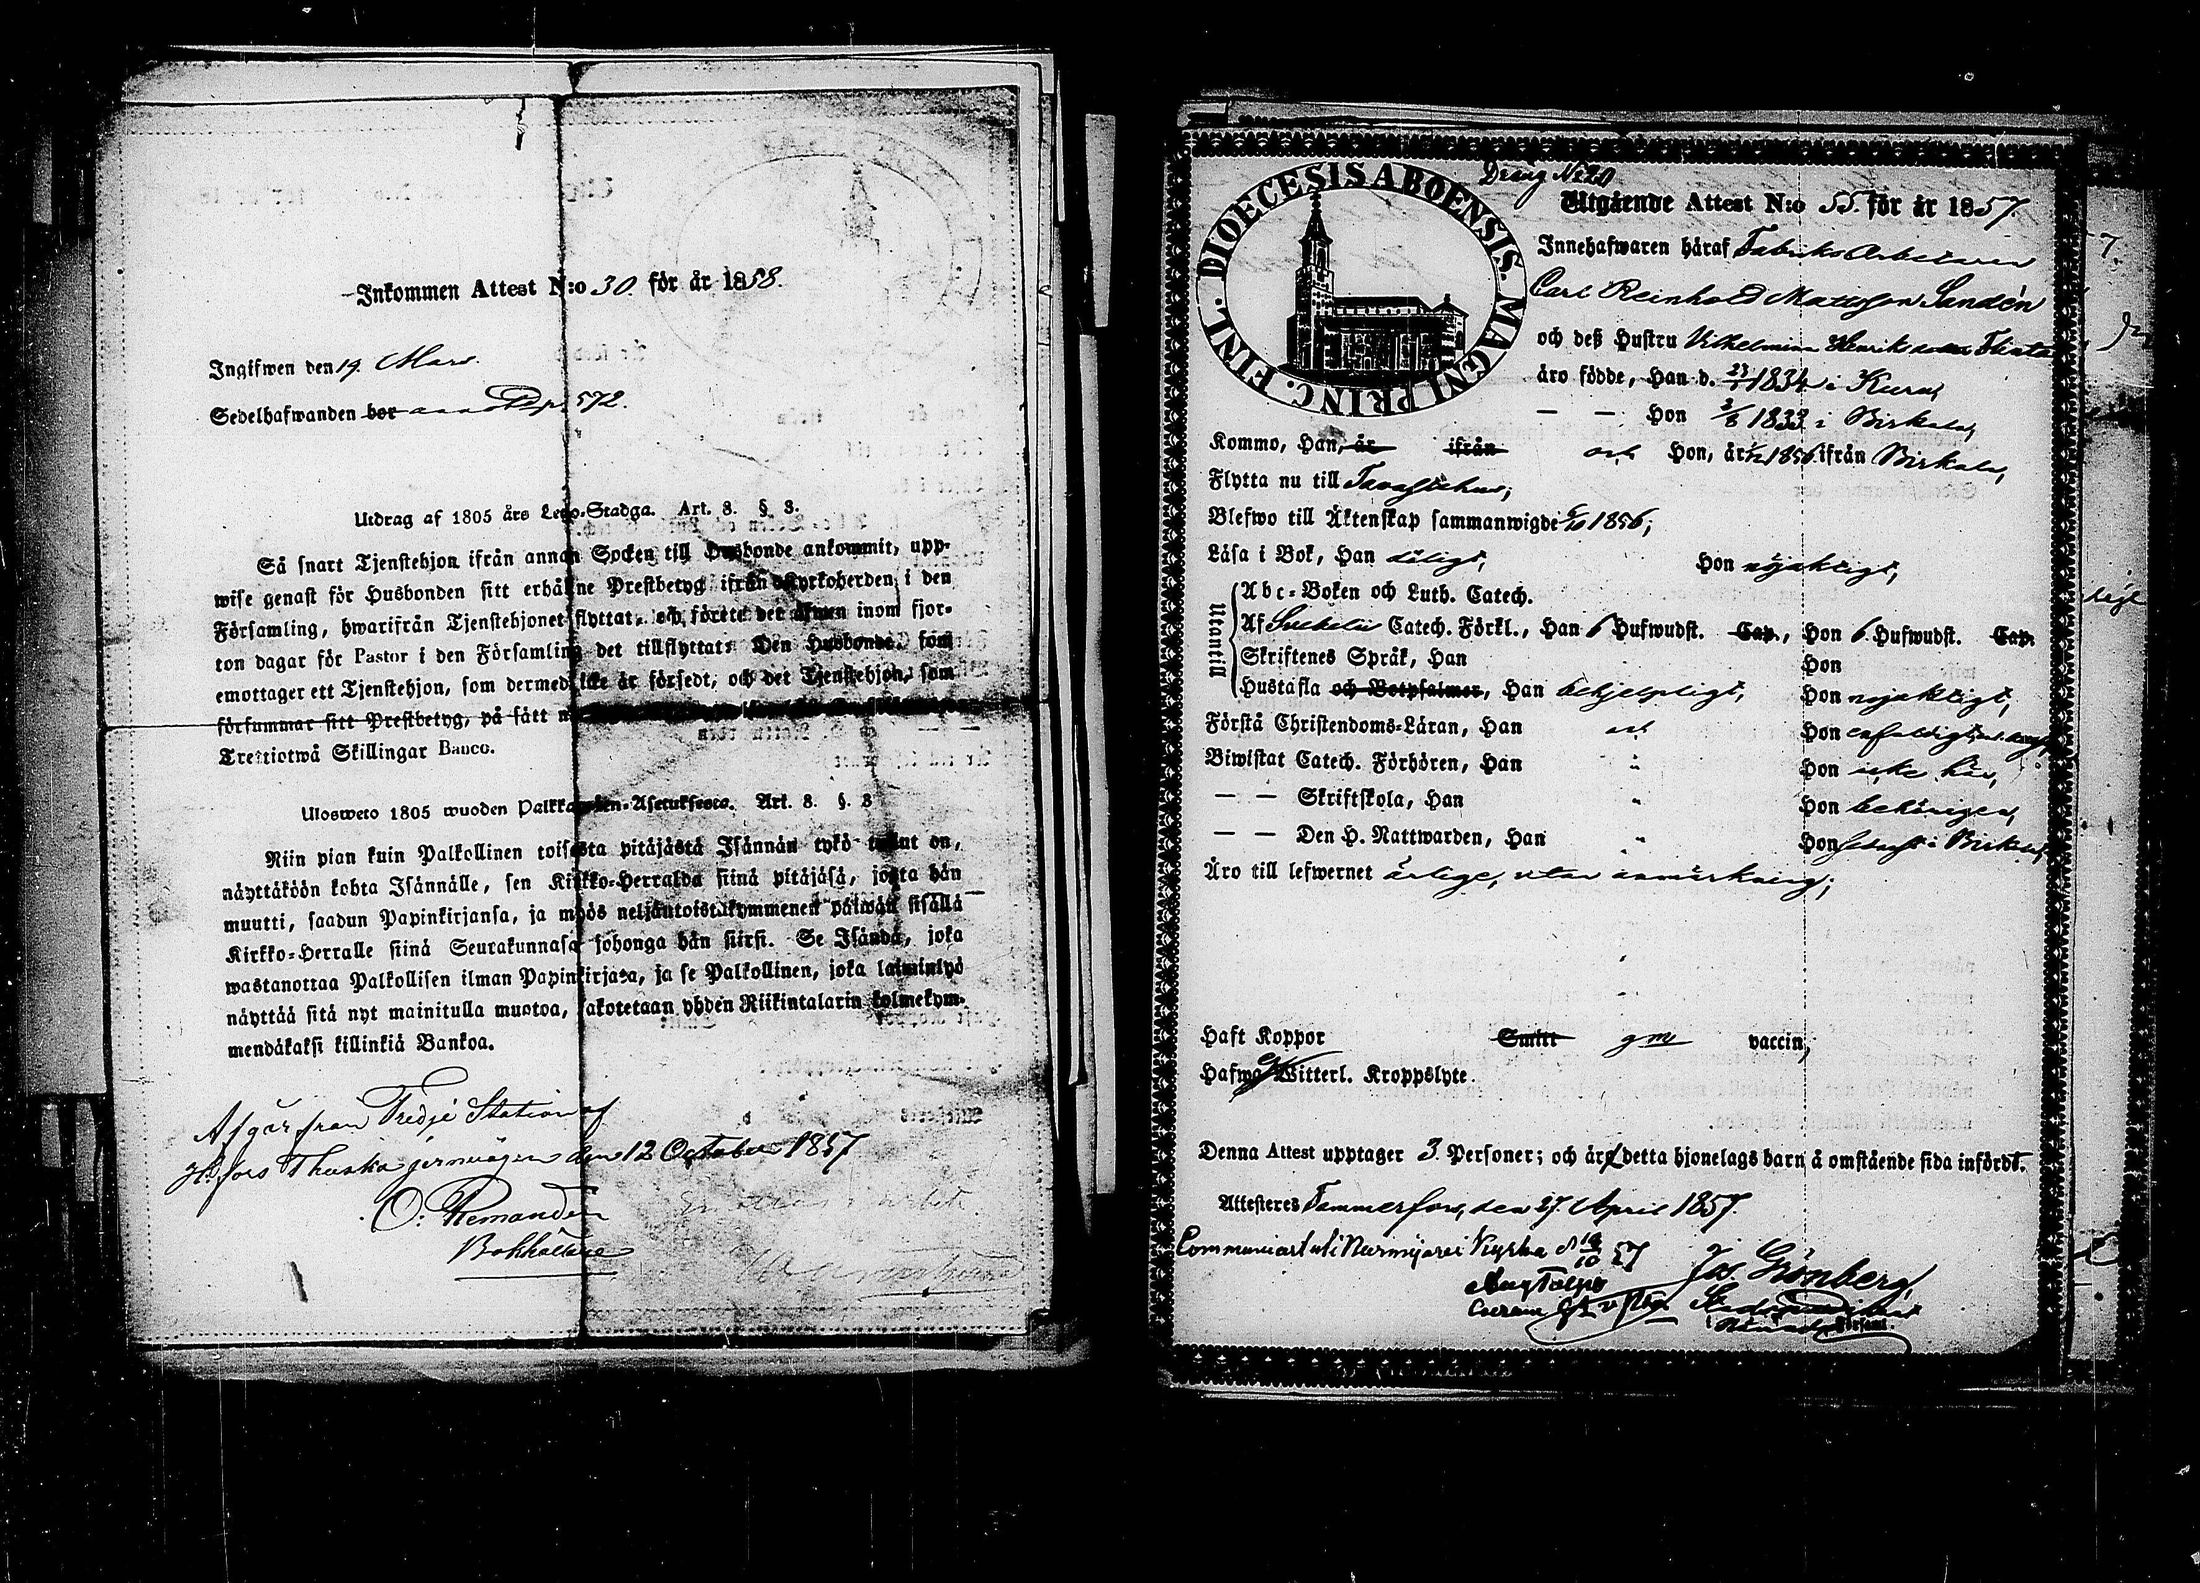 Inkommen Attest N:o 30. för år 1858.
Ingifwen den 19. Mars.
Sedelhafwanden bor 572.
Utdrag af 1805 års Lego-Stadga. Art. 8. § 3.
Så snart Tjenstehjon ifrån annan Socken till Husbonde ankommit, upp-
wise genast för Husbonden sitt erhållne Prestbetyg ifrån Kyrkoherden i den
Församling, hwarifrån Tjenstehjonet flyttat, och förete det äfwen inom fjor-
ton dagar för Pastor i den Församling det tillflyttat. Den Husbonde, som
emottager ett Tjenstehjon, som dermed icke är försedt, och det Tjenstehjon, som
försummar sitt Prestbetyg, på sätt
Trettiotwå Skillingar Banco.
Ulosweto 1805 wuoden Palkkawäen-Asetuksesta. Art. 8. §. 3
Niin pian kuin Palkollinen toisesta pitäjästä Isännän tykö tullut on,
näyttäköön kohta Isännälle, sen Kirkko-Herralda siinä pitäjäsä, josta hän
muutti, saadun Papinkirjansa, ja myös neljäntoistakymmenen päiwän sisällä
Kirkko-Herralle siinä Seurakunnasa johonga hän siirsi. Se Isändä, joka
wastanottaa Palkollisen ilman Papinkirjata, ja se Palkollinen, joka laiminlyö
näyttää sitä nyt mainitulla muotoa, sakotetaan yhden Riikintalarin kolmekym-
mendäkaksi killinkiä Bankoa.
Afgår från Tredje Station af
H:fors Thuska jernvägen den 12 October 1857
O. Remander
Bokhållare
DIOECESIS ABOENSIS. MAGNI PRINC. FINL.
Dräng N:o 20
Utgående Attest N:o 55. för år 1857.
Innehafwaren häraf Fabriks Arbetaren
Carl Reinhold Mattsson Sandén
och deß Hustru Vilhelmina Henriks dotter
äro födde, Han d. 23/1 1834 i Kuru,
— — Hon 2/8 1833 i Birkala,
Kommo, Han, är ifrån och Hon, är 1856 ifrån Birkala,
Flytta nu till Tavastehus;
Blefwo till Äktenskap sammanwigde 5/10 1856;
Läsa i Bok, Han dåligt, Hon nöjaktigt,
Utantill
Abc-Boken och Luth. Catech.
Af Svebelii Catech. Förkl., Han 6 Hufwudst. Cap., Hon 6 Hufwudst. Cap.
Skriftenes Språk, Han Hon
Hustafla och Botpsalmer, Han behjelpligt, Hon nöjaktigt,
Förstå Christendoms-Läran, Han och Hon enfaldigt
Biwistat Catech. Förhören, Han " Hon icke här,
— — Skriftskola, Han " Hon behörigen,
— — Den H. Nattwarden, Han " Hon i Birkala,
Äro till lefwernet ärlige, utan anmärkning;
Haft Koppor Smitt gm vaccin,
Hafwa ej Witterl. Kroppslyte.
Denna Attest upptager 3. Personer; och är detta hjonelags barn å omstående sida infördt.
Attesteres Tammerfors, den 27. April 1857.
Communicerat uti Nurmijärvi Kyrka d 18/10 57
Jos. Grönberg,
i Församl.